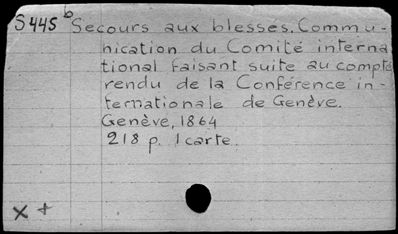 S 445 b Secours aux blessés. Commu-
nication du Comité interna
tional faisant suite au compte
rendu de la Conférence in-
ternationale de Genève.
Genève, 1864
218 p. 1 carte.
x +